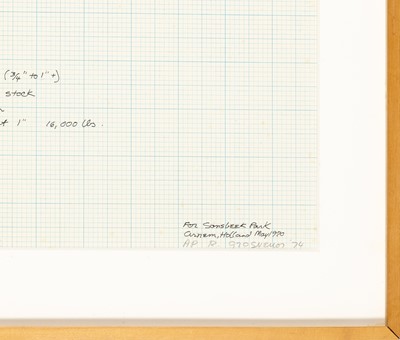 (3/4" to 1" +)
stock
1" 16,000 lbs.
For Sonsbeek Park
Arnem, Holland May 1970
AP